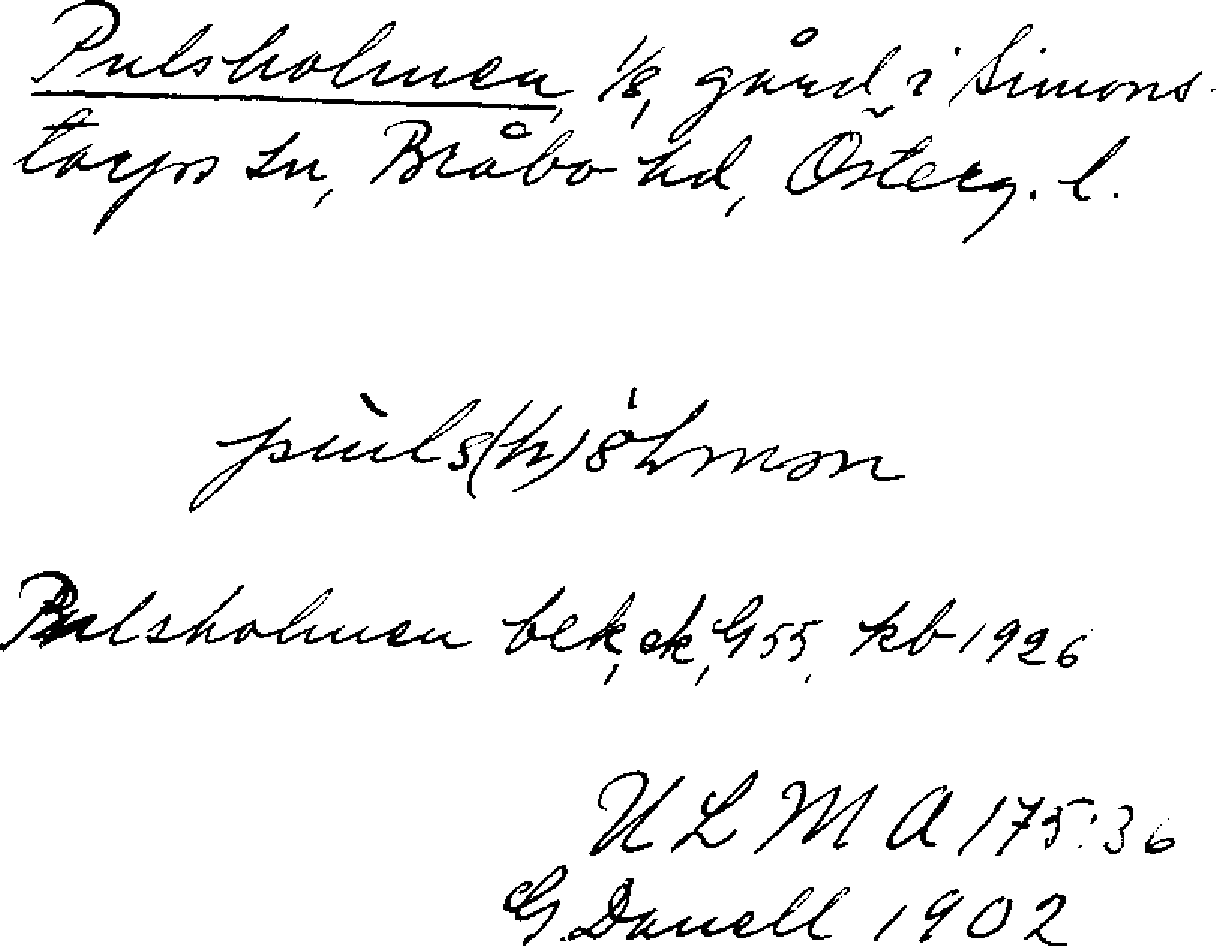 Pulsholmen, 1/8, gård i Simons-
torps sn, Bråbo hd, Österg. l.
Pulsholmen bek, ek, G 55, kb 1926
ULMA 175:36
G. Danell 1902